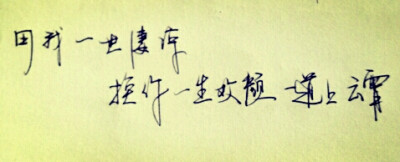 用我一世凄凉
换你一生欢颜 一道上云霄